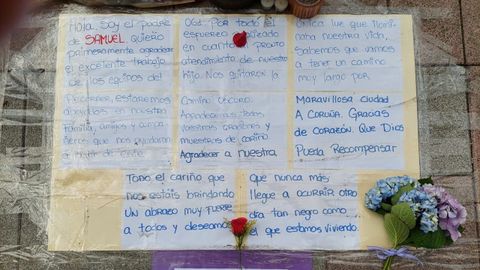 Hola, Soy el padre
de SAMUEL, quiero
primeramente agradecer
el excelente trabajo
de los equipos del
061. Por todo el
esfuerzo realizado
en cuanto al pronto
atendimiento de nuestro
hijo. Nos quitaron la
única luz que ilumi
naba nuestra vida,
Sabemos que vamos
a tener un camino
muy largo por
Recorrer, estaremos
apoyados en nuestra
Familia, amigos y compa
ñeros que nos ayudaran
a salir de este
Camino oscuro.
Agradezco a todos
vuestras oraciones y
muestras de cariño
Agradecer a nuestra
Maravillosa ciudad
A CORUÑA. Gracias
de corazón. Que Dios
Pueda Recompensar
Todo el cariño que
nos estáis brindando
UN abrazo muy fuerte
a todos y deseamos
que nunca más
llegue a ocurrir otro
día tan negro como
el que estamos viviendo.